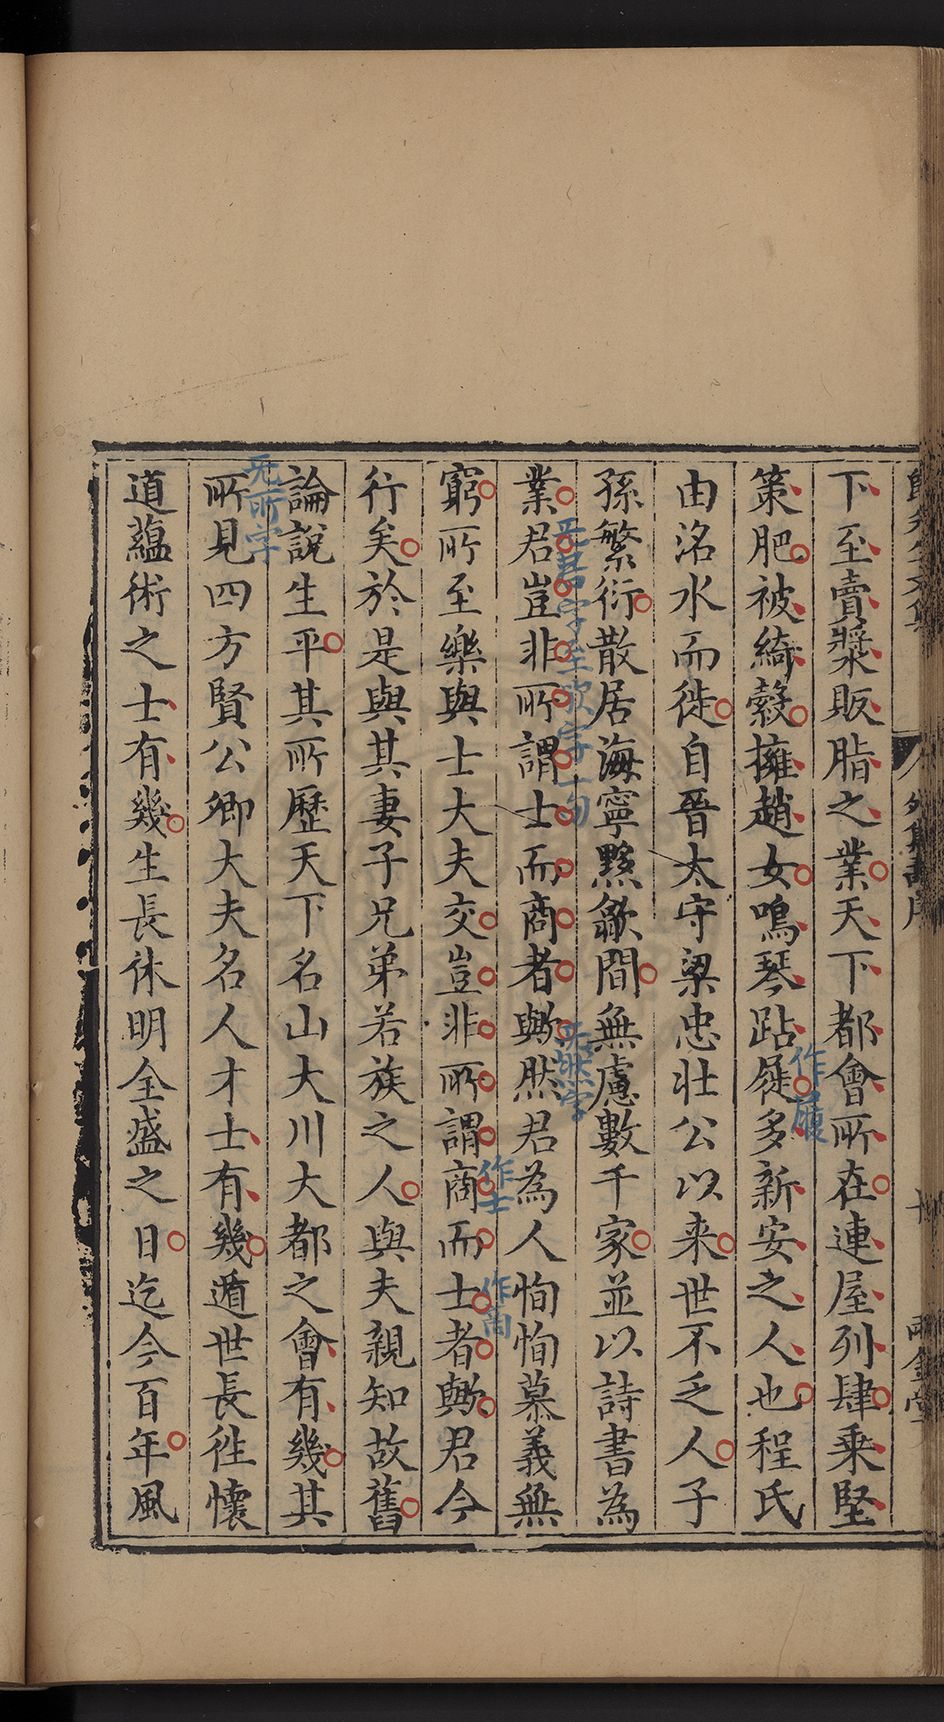 下至賣漿販脂之業天下都會所在連屋列肆乗堅
策肥被綺縠擁趙女鳴琴跕屣多新安之人也程氏
作屨
由洺水而徙自晉太守梁忠壯公以来世不乏人子
孫繁衍散居海寧黟歙間無慮數千家並以詩書為
業君豈非所謂士而商者歟然君為人恂恂慕義無
无君字至歟字十句
无然字
窮所至樂與士大夫交豈非所謂商而士者歟君今
作士
作商
行矣於是與其妻子兄弟若族之人與夫親知故舊
論說生平其所歷天下名山大川大都之會有幾其
所見四方賢公卿大夫名人才士有幾遁世長徃懷
无所字
道蘊術之士有幾生長休明全盛之日迄今百年風